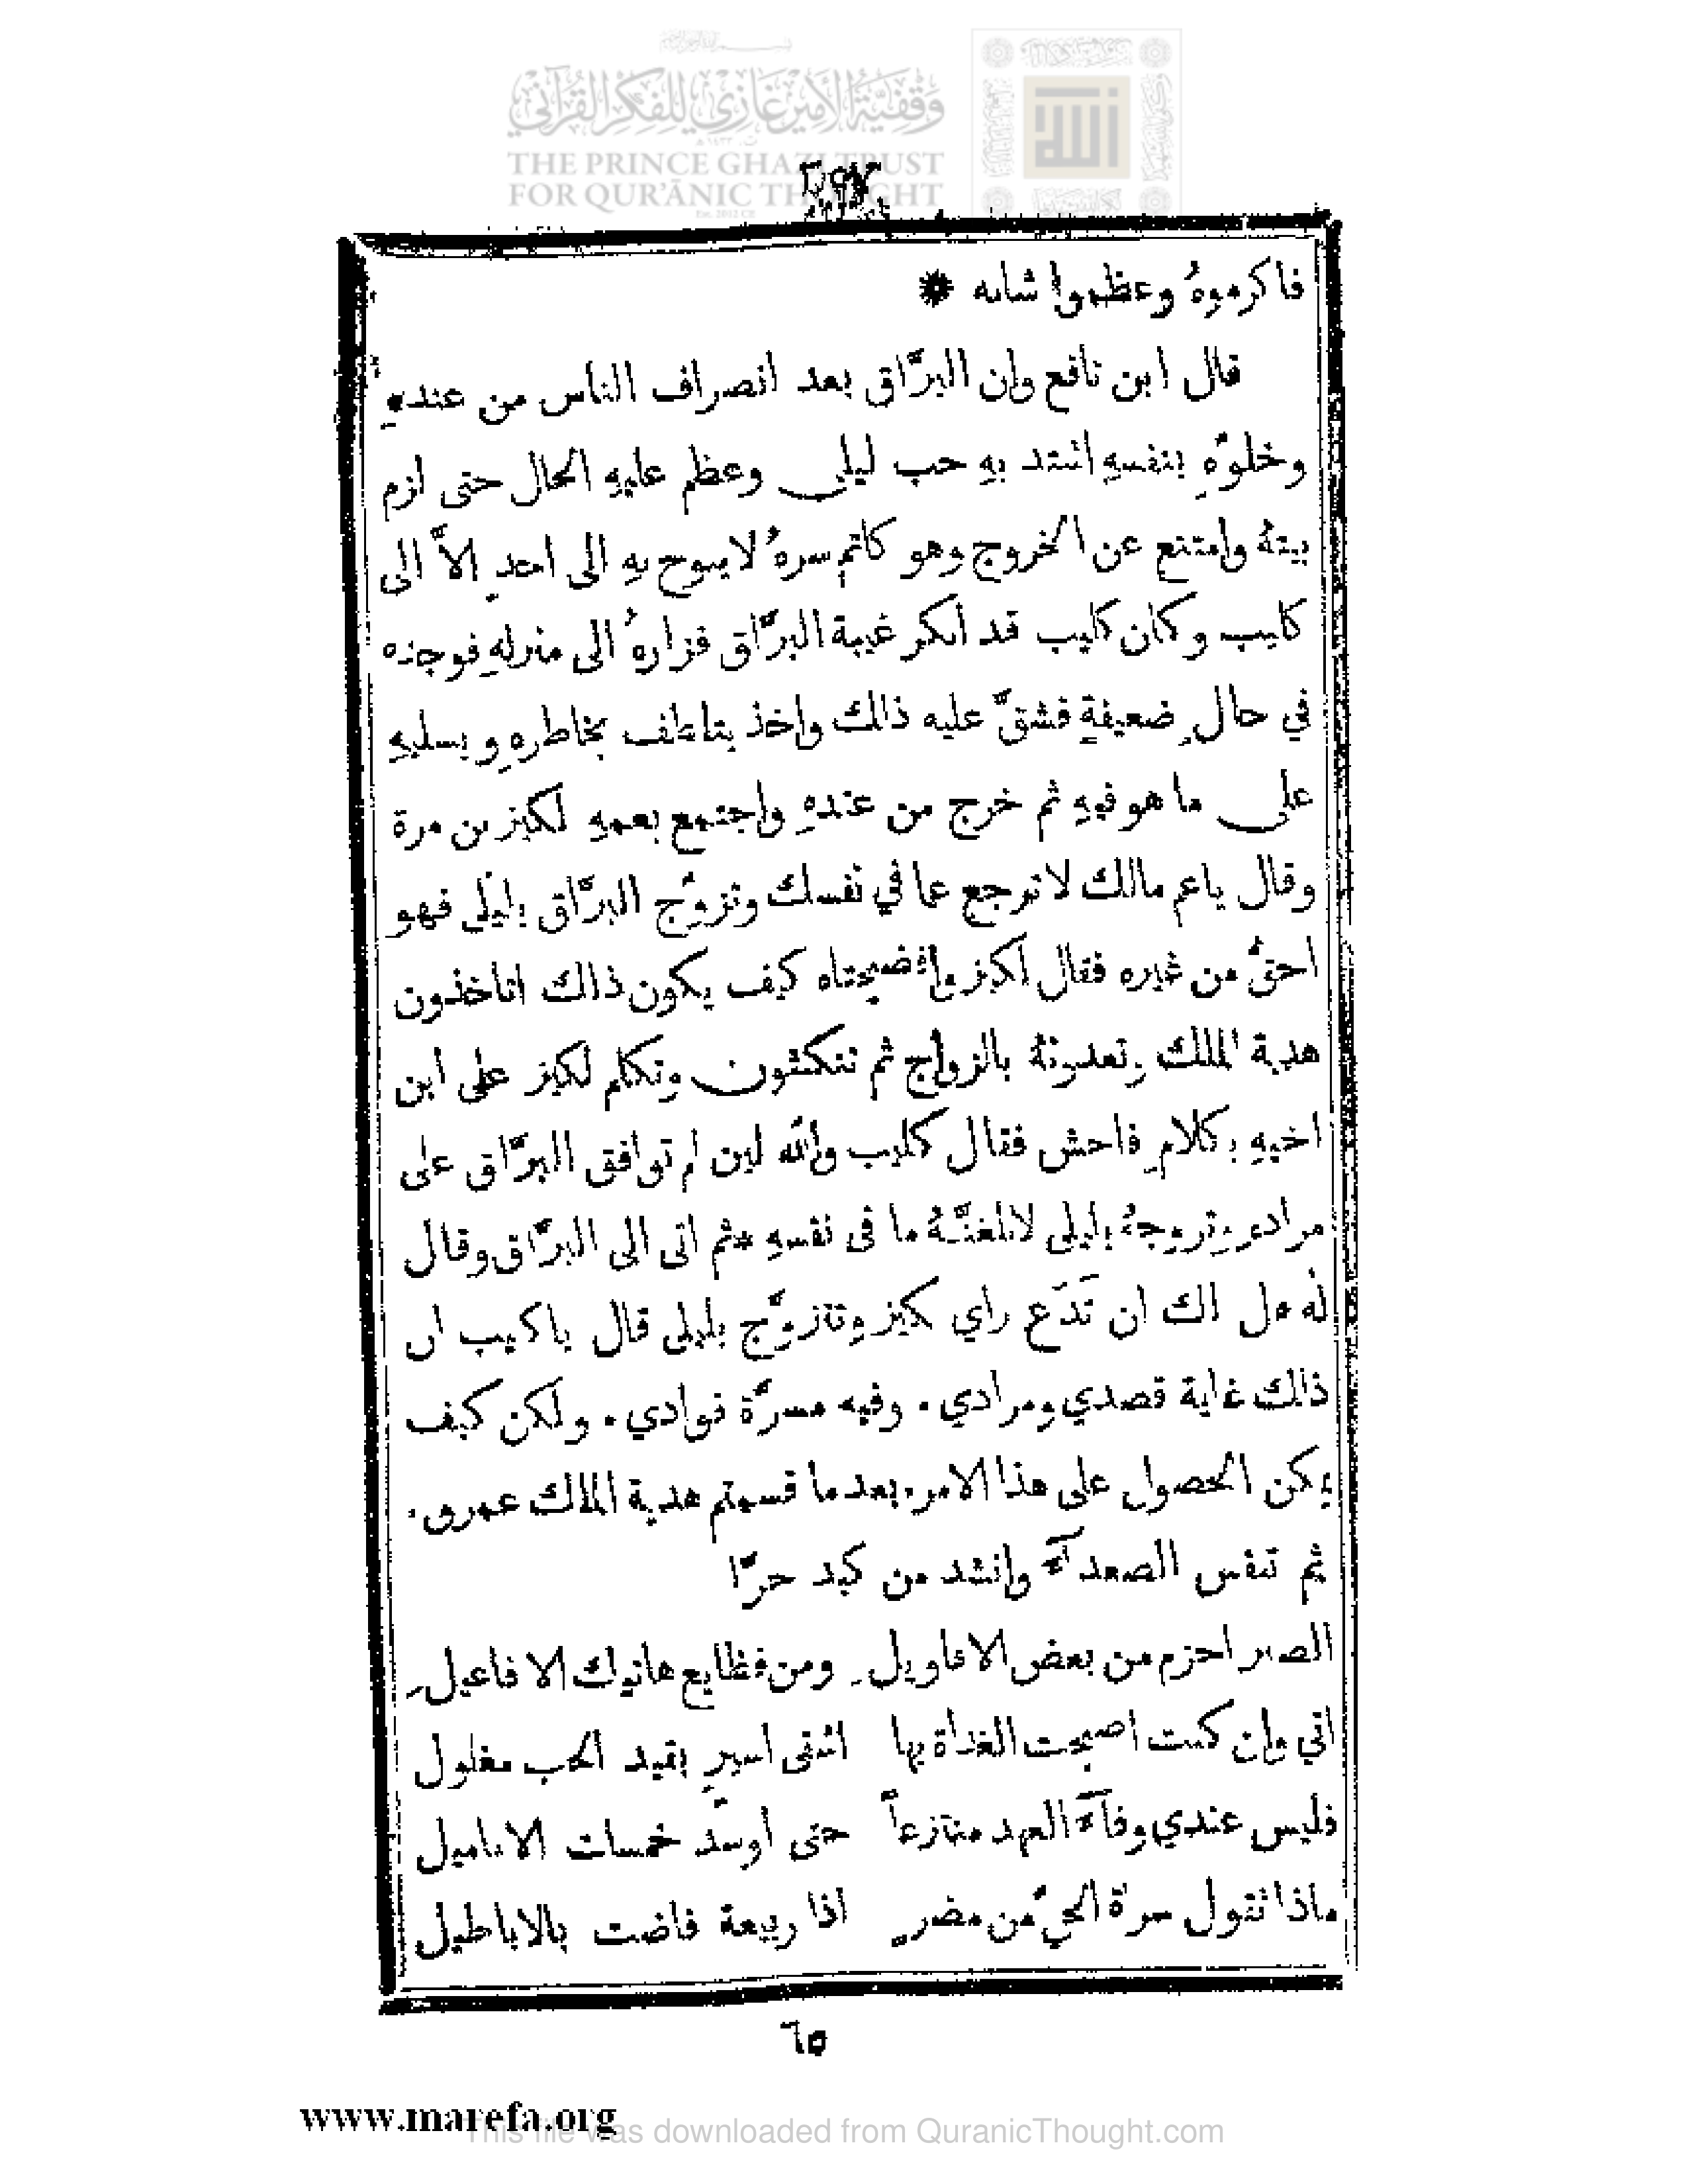 وقفية الأمير غازي للفكر القرآني
THE PRINCE GHAZI TRUST
FOR QUR'ĀNIC THOUGHT
Est. 2012 CE
فاكرموهُ وعظموا شانه *
قال ابن نافع وان البرَّاق بعد انصراف الناس من عندهِ
وخلوّهِ بنفسهِ اشتد بهِ حب ليلى وعظم عليهِ الحال حتى لزم
بيتهُ وامتنع عن الخروج وهو كاتم سرهُ لا يبوح بهِ الى احدٍ الاَّ الى
كليب وكان كليب قد انكر غيبة البرَّاق فزارهُ الى منزلهِ فوجده
في حالٍ ضعيفةٍ فشقَّ عليه ذلك واخذ يتلطف بخاطرهِ ويسليهِ
على ما هو فيهِ ثم خرج من عندهِ واجتمع بعمهِ لكيز بن مرة
وقال ياعم مالك لا ترجع عما في نفسك وتزوّج البرَّاق بليلى فهو
احقُّ من غيره فقال لكيز وافضيحتاه كيف يكون ذلك اتاخذون
هدية الملك وتعدونهُ بالزواج ثم تنكثون وتكلم لكيز على ابن
اخيهِ بكلامٍ فاحش فقال كليب والله لين لم توافق البرَّاق على
مرادهِ وتزوجهُ بليلى لابلغنَّهُ ما في نفسهِ * ثم اتى الى البرَّاق وقال
لهُ هل لك ان تَدَع راي لكيز وتتزوَّج بليلى قال ياكليب ان
ذلك غاية قصدي ومرادي. وفيه مسرَّة فوادي. ولكن كيف
يمكن الحصول على هذا الامر. بعد ما قسمتم هدية الملك عمرو.
ثم تنفس الصعدآء وانشد من كبد حرَّا
الصبر احزم من بعض الاقاويلِ ومن فظايع هاتيك الافاعيلِ
اني وان كنت اصبحت الغداة بها اشقى اسيرٍ بقيد الحب مغلول
فليس عندي وفآء العهد منتزعاً حتى أوسَّد خمسات الاناميل
ماذا تقول سراة الحيّ من مضرٍ اذا ربيعة فاضت بالاباطيل
٦٥
www.marefa.org
This file was downloaded from QuranicThought.com